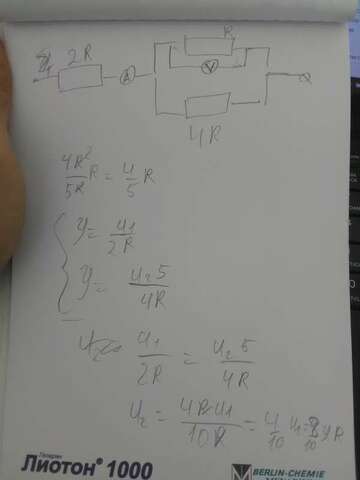 2R
A
R
V
4R
4R²/5R R = 4/5 R
y = u₁/2R
y = u₂5/4R
u₁/2R = u₂5/4R
u₂ = 4R·u₁/10R = 4/10 u₁
Гепарин
ЛИОТОН® 1000
BERLIN-CHEMIE